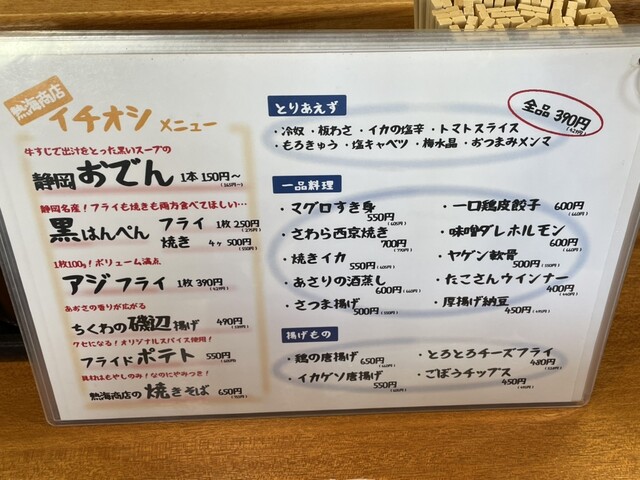 熱海商店
イチオシ メニュー
牛すじで出汁をとった黒いスープの
静岡おでん 1本 150円~
静岡名産!フライも焼きも両方食べてほしい…
黒はんぺん フライ 1枚 250円
焼き 4ヶ 500円
1枚100g!ボリューム満点
アジフライ 1枚 390円
あおさの香りが広がる
ちくわの磯辺揚げ 490円
クセになる!オリジナルスパイス使用!
フライドポテト 550円
具材はもやしのみ!なのにやみつき!
熱海商店の焼きそば 650円
とりあえず
全品 390円
・冷奴・板わさ・イカの塩辛・トマトスライス
・もろきゅう・塩キャベツ・梅水晶・おつまみメンマ
一品料理
・マグロすき身 550円
・さわら西京焼き 700円
・焼きイカ 550円
・あさりの酒蒸し 600円
・さつま揚げ 500円
・一口鶏皮餃子 600円
・味噌ダレホルモン 600円
・ヤゲン軟骨 500円
・たこさんウインナー 400円
・厚揚げ納豆 450円
揚げもの
・鶏の唐揚げ 650円
・イカゲソ唐揚げ 550円
・とろとろチーズフライ 480円
・ごぼうチップス 450円